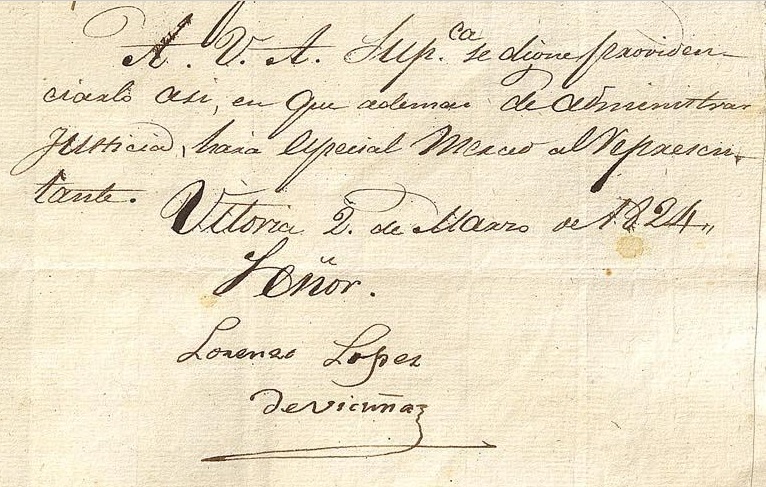 A. V. A. Sup.ca se digne providen-
ciarlo asi, en que ademas de administrar
Justicia, hara especial Merced al Represen-
tante.
Vitoria 2. de Marzo de 1824,,
Señor.
Lorenzo Lopez
de Vicuña